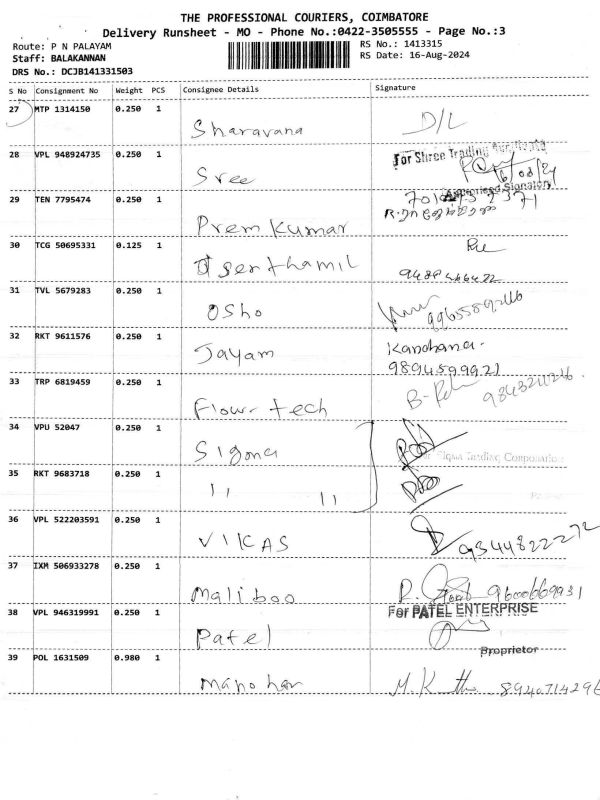 THE PROFESSIONAL COURIERS, COIMBATORE
Delivery Runsheet - MO - Phone No.:0422-3505555 - Page No.:3
Route: P N PALAYAM
RS No.: 1413315
Staff: BALAKANNAN
RS Date: 16-Aug-2024
DRS No.: DCJB141331503
S No Consignment No Weight PCS Consignee Details Signature
27 MTP 1314150 0.250 1
Sharavana D/L
28 VPL 948924735 0.250 1
For Shree Trading
Sree
Authorised Signatory
29 TEN 7795474 0.250 1
Prem Kumar
30 TCG 50695331 0.125 1
senthamil
31 TVL 5679283 0.250 1
Osho
32 RKT 9611576 0.250 1
Jayam Kanchana.
9894599921
33 TRP 6819459 0.250 1
Flow tech
34 VPU 52047 0.250 1
Sigma
Sigma Trading Corporation
35 RKT 9683718 0.250 1
" "
36 VPL 522203591 0.250 1
VIKAS 9344822272
37 IXM 506933278 0.250 1
Maliboo 9600669931
38 VPL 946319991 0.250 1
For PATEL ENTERPRISE
Patel
Proprietor
39 POL 1631509 0.980 1
Manohar 8940714296